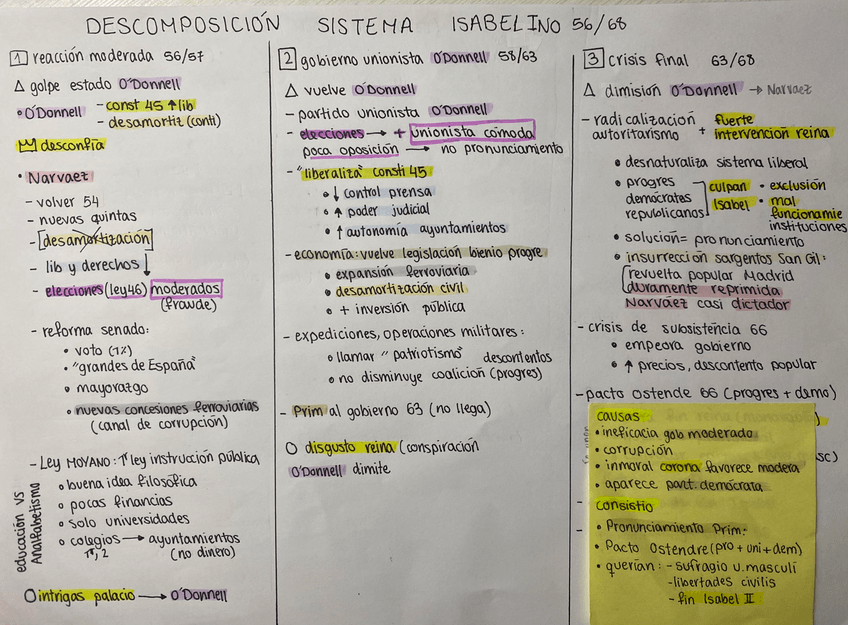 DESCOMPOSICIÓN SISTEMA ISABELINO 56/68
1 reacción moderada 56/57
Δ golpe estado O'Donnell
• O'Donnell - const 45 ↑ lib
- desamortiz (conti)
desconfía
• Narvaez
- volver 54
- nuevas quintas
- [desamortización]
- lib y derechos ↓
- elecciones (ley46) moderados
(fraude)
- reforma senado:
• voto (1%)
• "grandes de España"
• mayorazgo
• nuevas concesiones ferroviarias
(canal de corrupción)
- Ley MOYANO: 1ª ley instrucción pública
educación vs
Analfabetismo
• buena idea filosofica
• pocas financias
• solo universidades
• colegios → ayuntamientos
1ª, 2 (no dinero)
O intrigas palacio → O'Donnell
2 gobierno unionista O'Donnell 58/63
Δ vuelve O'Donnell
- partido unionista O'Donnell
- elecciones → + unionista comoda
poca oposición → no pronunciamiento
- "liberaliza" consti 45
• ↓ control prensa
• ↑ poder judicial
• ↑ autonomía ayuntamientos
- economía: vuelve legislación bienio progre
• expansión ferroviaria
• desamortización civil
• + inversión pública
- expediciones, operaciones militares:
• llamar "patriotismo" descontentos
• no disminuye coalición (progres)
- Prim al gobierno 63 (no llega)
O disgusto reina (conspiración
O'Donnell dimite
3 Crisis final 63/68
Δ dimisión O'Donnell → Narvaez
- radicalización autoritarismo + fuerte intervención reina
• desnaturaliza sistema liberal
• progres
demócrates
republicanos
culpan
Isabel
• exclusión
• mal
funcionamie
instituciones
• solución = pronunciamiento
• insurrección sargentos San Gil:
revuelta popular Madrid
duramente reprimida
Narváez casi dictador
- crisis de subsistencia 66
• empeora gobierno
• ↑ precios, descontento popular
- pacto ostende 66 (progres + demo)
causas
• ineficacia gob moderado
• corrupción
• inmoral corona favorece modera
• aparece part. demócrata
consistio
• Pronunciamiento Prim:
• Pacto Ostendre (pro + uni + dem)
• querían: - sufragio u. masculi
- libertades civilis
- fin Isabel II